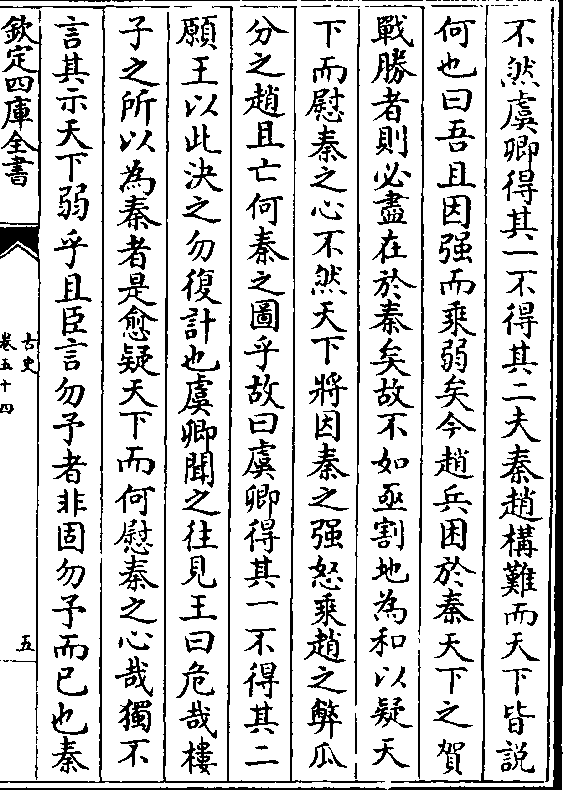 不然虞卿得其一不得其二夫秦趙構難而天下皆說
何也曰吾且因强而乘弱矣今趙兵困於秦天下之賀
戰勝者則必盡在於秦矣故不如亟割地為和以疑天
下而慰秦之心不然天下將因秦之强怒乘趙之弊瓜
分之趙且亡何秦之圖乎故曰虞卿得其一不得其二
願王以此決之勿復計也虞卿聞之往見王曰危哉樓
子之所以為秦者是愈疑天下而何慰秦之心哉獨不
言其示天下弱乎且臣言勿予者非固勿予而已也秦
欽定四庫全書
古史
卷五十四
五